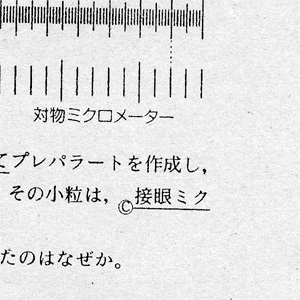 対物ミクロメーター
てプレパラートを作成し，
その小粒は，Ⓒ接眼ミク
たのはなぜか。